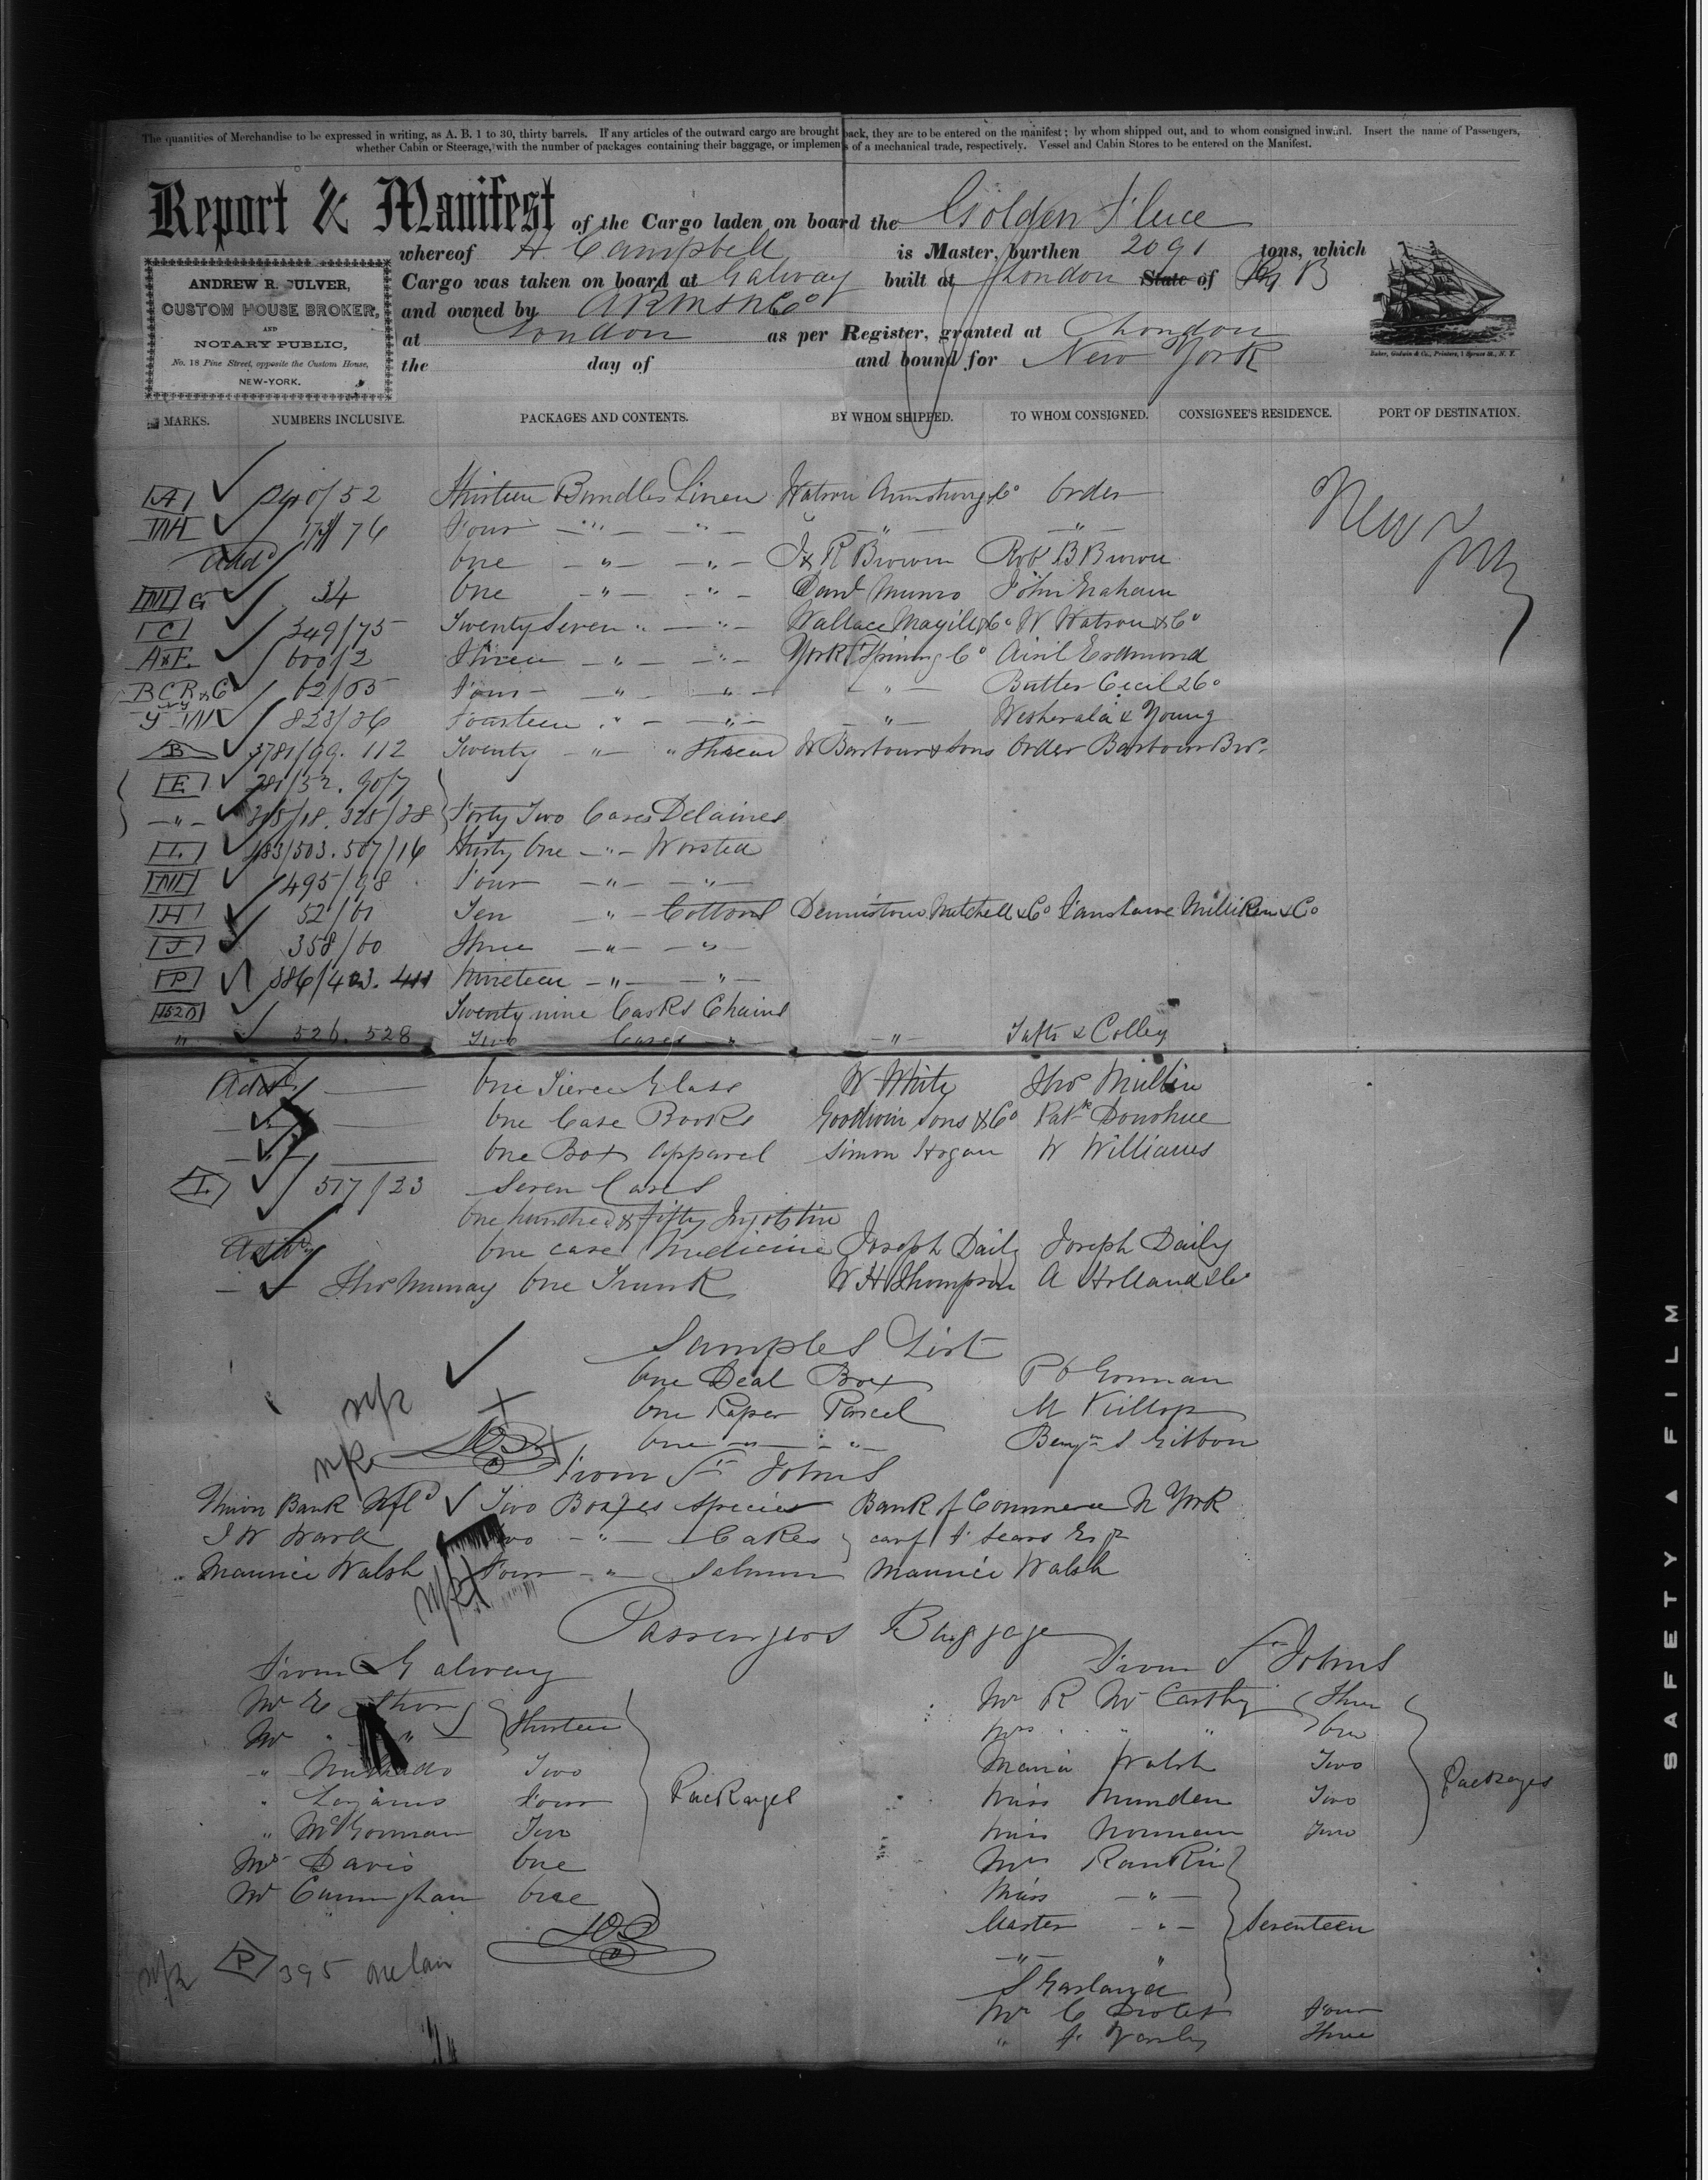 The quantities of Merchandise to be expressed in writing, as A. B. 1 to 30, thirty barrels. If any articles of the outward cargo are brought back, they are to be entered on the manifest; by whom shipped out, and to whom consigned inward. Insert the name of Passengers,
whether Cabin or Steerage, with the number of packages containing their baggage, or implements of a mechanical trade, respectively. Vessel and Cabin Stores to be entered on the Manifest.
Report & Manifest of the Cargo laden on board the Golden Fleece
whereof A. Campbell is Master, burthen 2091 tons, which
Cargo was taken on board at Galway built at London State of
and owned by ARMSNCo
at London as per Register, granted at London
the day of and bound for New York
ANDREW R. CULVER,
CUSTOM HOUSE BROKER,
AND
NOTARY PUBLIC,
No. 18 Pine Street, opposite the Custom House,
NEW-YORK.
Baker, Godwin & Co., Printers, 1 Spruce St., N. Y.
MARKS. NUMBERS INCLUSIVE. PACKAGES AND CONTENTS. BY WHOM SHIPPED. TO WHOM CONSIGNED. CONSIGNEE'S RESIDENCE. PORT OF DESTINATION.
A 240/52 Thirteen Bundles Linen Watson Armstrong &Co Order New
Four " " " "
Add One " " J & R Brown Robt B Brown
G 34 One " " Danl Munro John Graham
C 349/75 Twenty Seven " " Wallace Magill &Co W Watson & Co
A&E 600/2 Three " " York St Spinning Co
BCR&Co 62/65 Four " " " Butler Cecil & Co
823/36 Fourteen " " "
B 3781/99. 112 Twenty " " Thread W Barbour & Sons Order Barbour Bro.
E 281/32. 90/7
" 315/18. 325/28 Forty Two Cases Delaines
I. 483/503. 507/16 Thirty One " Worsted
495/98 Four " "
H 52/61 Ten " Cottons Dennistoun Mitchell & Co Fanshawe Milliken & Co
J 358/60 Three " "
P 386/403. 411 Nineteen " "
1520 Twenty nine Casks Chains
" 526. 528 Two Cases " " Tafts & Colley
Add One Tierce Glass W White Thos Mullin
One Case Books Goodwin Sons & Co Patk Donohue
One Box Apparel Simon Hogan W Williams
I. 517/23 Seven Cases
One hundred & fifty Ingots tin
Add One case Medicine Joseph Daily Joseph Daily
Thos Murray One Trunk W H Thompson A Holland & Co
Samples List
One Deal Box P O Gorman
One Paper Parcel M Killop
One " " Benjn S Gibbon
From St Johns
Union Bank Nfld Two Boxes Specie Bank of Commerce N York
J W Ward Two " Cakes care F Sears Esqr
Maurice Walsh Four " Salmon Maurice Walsh
Passengers Baggage
From Galway
Mr E
Mr " " Thirteen
" Two
" Four Packages
" McGorman Two
Mrs Davis One
Mr Cunningham One
P 395 one case
From St Johns
Mr R McCarthy Three
Mrs " " One
Maria Walsh Two
Miss Munden Two Packages
Miss Norman Two
Mrs Rankin
Miss "
Master " Seventeen
" "
S Garland
Mr C Four
" F Three